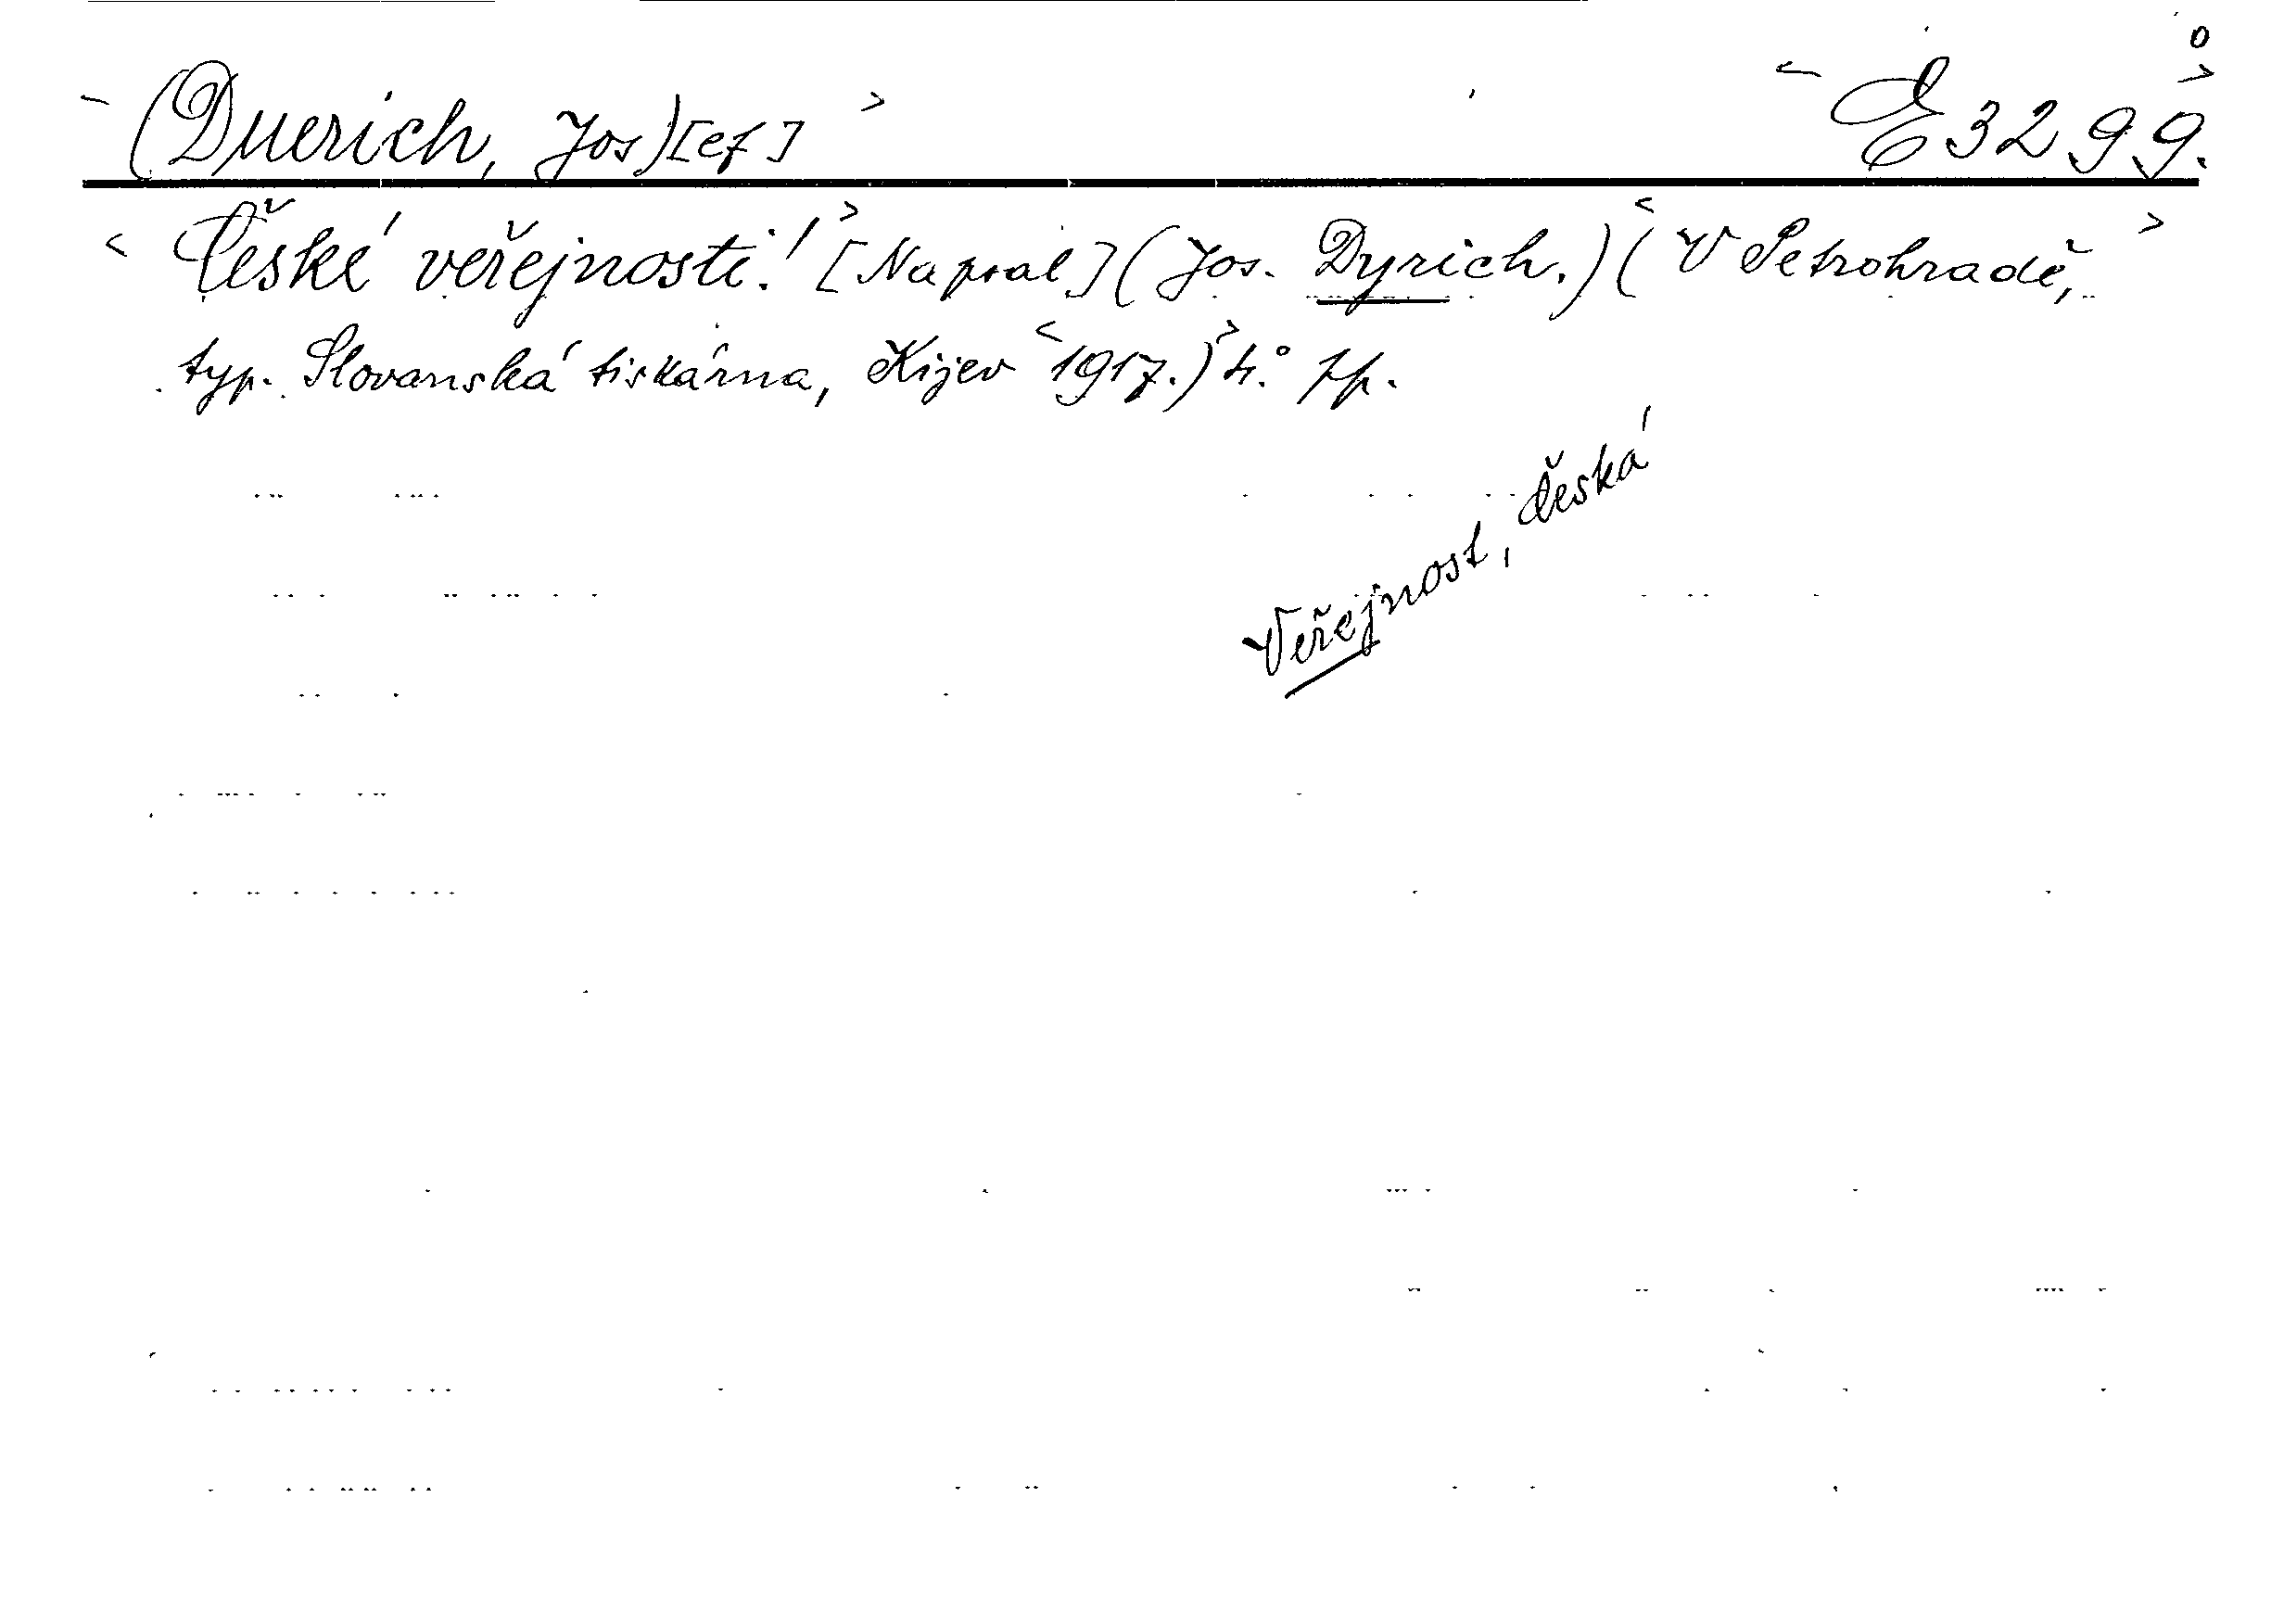 (Duerich, Jos)[ef] E 3299.
České veřejnosti! [Napsal] (Jos. Dyrich.) (V Petrohradě,
typ. Slovanská tiskárna, Kijev 1917.) 4.°
Veřejnost, česká